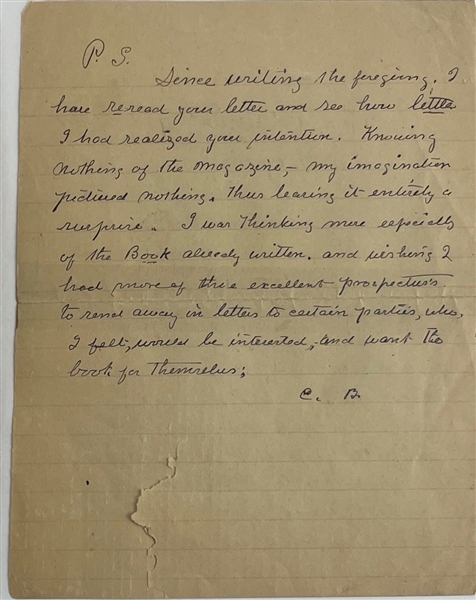 P. S.
Since writing the foregoing, I
have reread your letter and see how little
I had realized your intention. Knowing
nothing of the magazine, – my imagination
pictured nothing. thus leaving it entirely a
surprise. I was thinking more especially
of the Book already written. and wishing I
had more of those excellent prospectuses
to send away in letters to certain parties, who,
I felt, would be interested, and want the
book for themselves;
C. B.